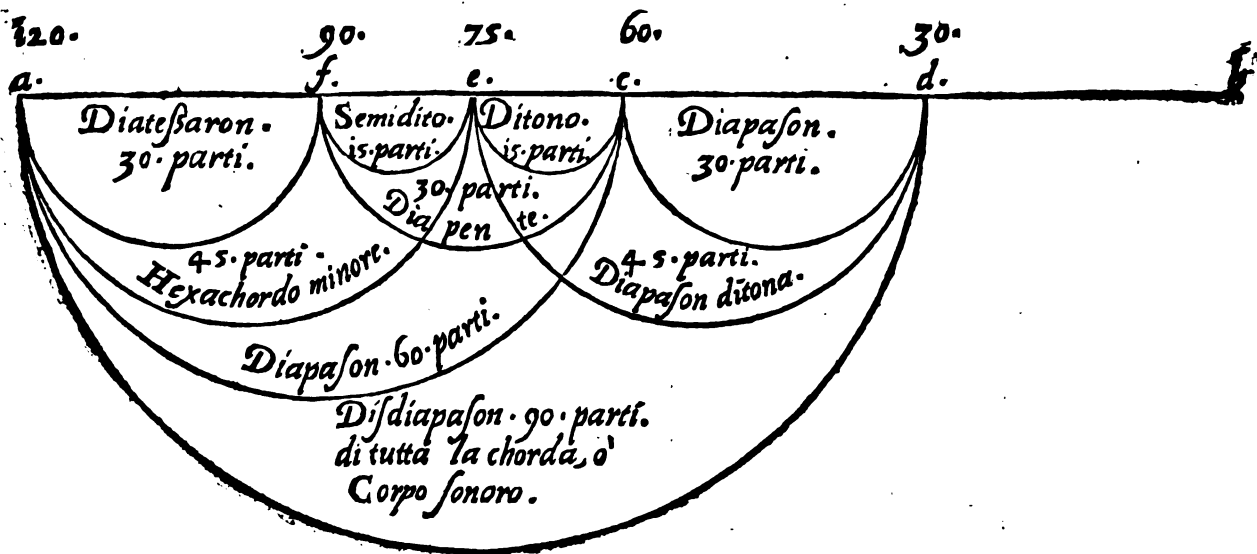 120. 90. 75. 60. 30.
a. f. e. c. d. b
Diateßaron.
30. parti.
Semidito.
15. parti.
Ditono.
15. parti
Diapaſon.
30. parti.
30. parti.
Dia pen te.
45. parti.
Hexachordo minore.
45. parti.
Diapaſon dītona.
Diapaſon. 60. parti.
Diſdiapaſon. 90. parti.
di tutta la chorda, ò
Corpo ſonoro.